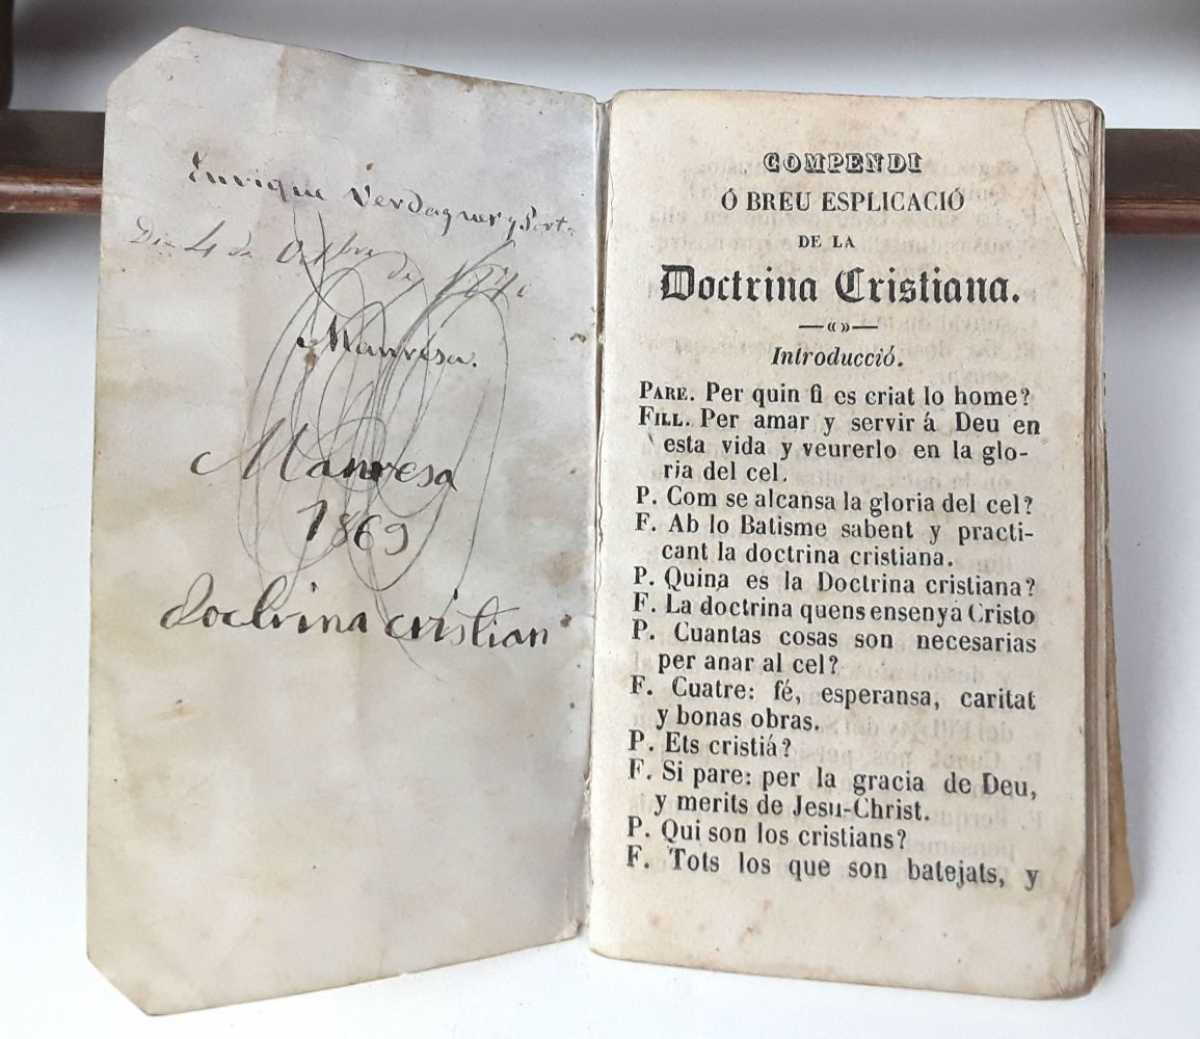 Enrique Verdaguer y
Dia 4 de Octbre de
Manresa.
Manresa
1869
doctrina cristian
COMPENDI
Ó BREU ESPLICACIÓ
DE LA
Doctrina Cristiana.
—«»—
Introducció.
PARE. Per quin fi es criat lo home?
FILL. Per amar y servir á Deu en
esta vida y veurerlo en la glo-
ria del cel.
P. Com se alcansa la gloria del cel?
F. Ab lo Batisme sabent y practi-
cant la doctrina cristiana.
P. Quina es la Doctrina cristiana?
F. La doctrina quens ensenyá Cristo
P. Cuantas cosas son necesarias
per anar al cel?
F. Cuatre: fé, esperansa, caritat
y bonas obras.
P. Ets cristiá?
F. Si pare: per la gracia de Deu,
y merits de Jesu-Christ.
P. Qui son los cristians?
F. Tots los que son batejats, y